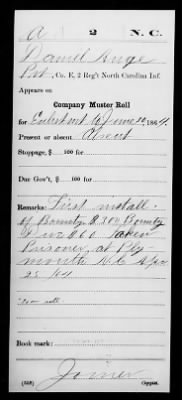 A 2 N. C.
Daniel Ange
Pvt, Co. E, 2 Reg't North Carolina Inf.
Appears on
Company Muster Roll
for Enlistment to June 30, 1864.
Present or absent Absent
Stoppage, $ 100 for
Due Gov't, $ 100 for
Remarks: First install.
of Bounty $300 Bounty
Taken
Prisoner at Ply-
mouth N.C. Apr
25 /64
Book mark:
Joiner
(358) Copyist.